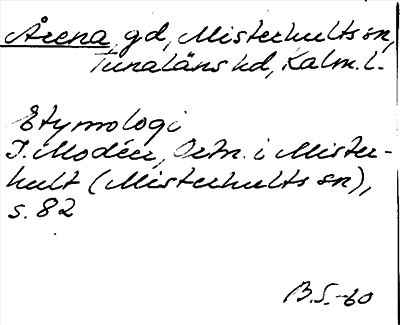 Årena, gd, Misterhults sn,
Tunaläns hd, Kalm. l.
Etymologi
I. Modéer, Ortn. i Mister-
hult (Misterhults sn),
s. 82
B.S.-60